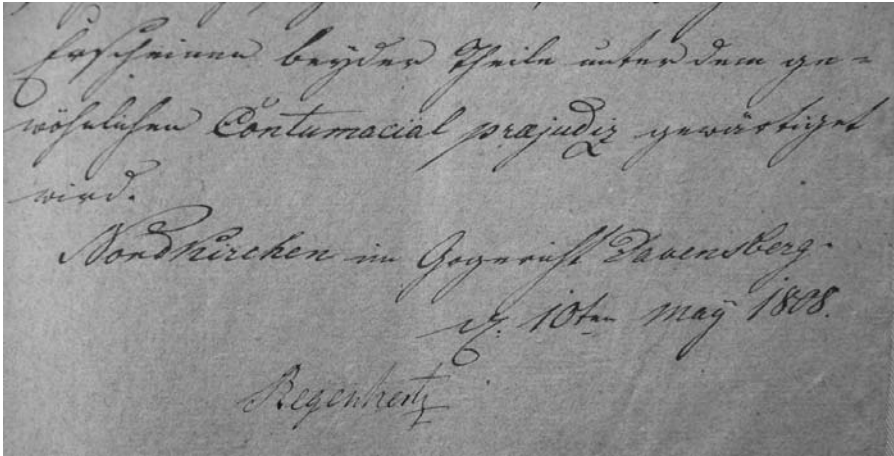 Erscheinen beyder Theile unter dem ge=
wöhnlichen Contumacial præjudiz gewärtiget
wird.
Nordkirchen im Gogericht Davensberg.
d. 10ten may 1808.
Regenhertz